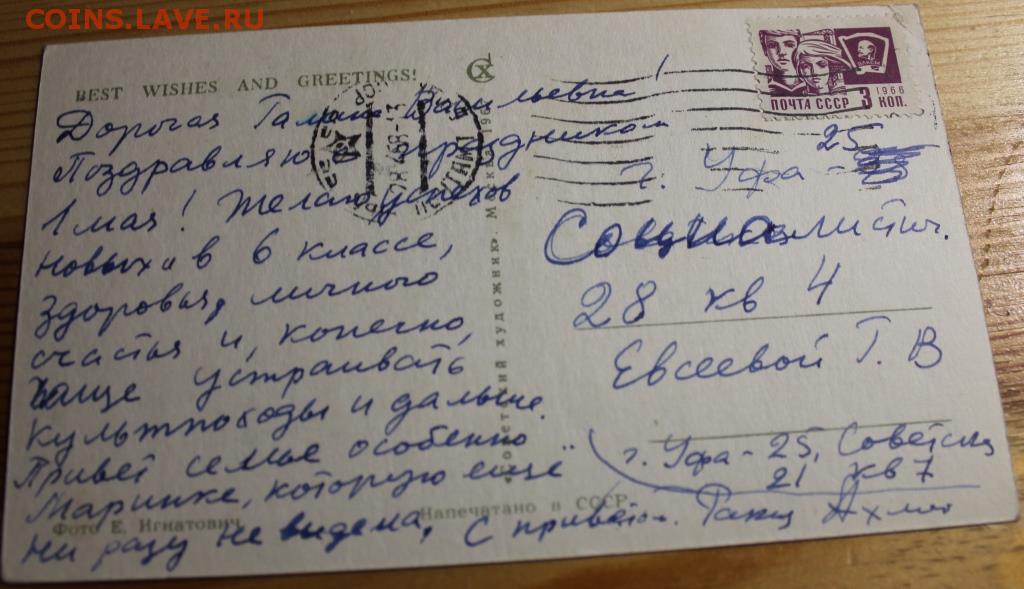 COINS.LAVE.RU
BEST WISHES AND GREETINGS!
Дорогая Галина Васильевна!
Поздравляю с праздником
1 мая! Желаю успехов
новых и в 6 классе,
здоровья, личного
счастья и, конечно,
чаще устраивать
культпоходы и дальше.
Привет семье особенно
Маринке, которую ещё
ни разу не видела, С приветом.
Фото Е. Игнатович
Напечатано в СССР
ПОЧТА СССР 3 КОП.
1966
ВЛКСМ
г. Уфа - 25
Социалистич.
28 кв 4
Евсеевой Г. В
г. Уфа - 25, Советская
21 кв 7